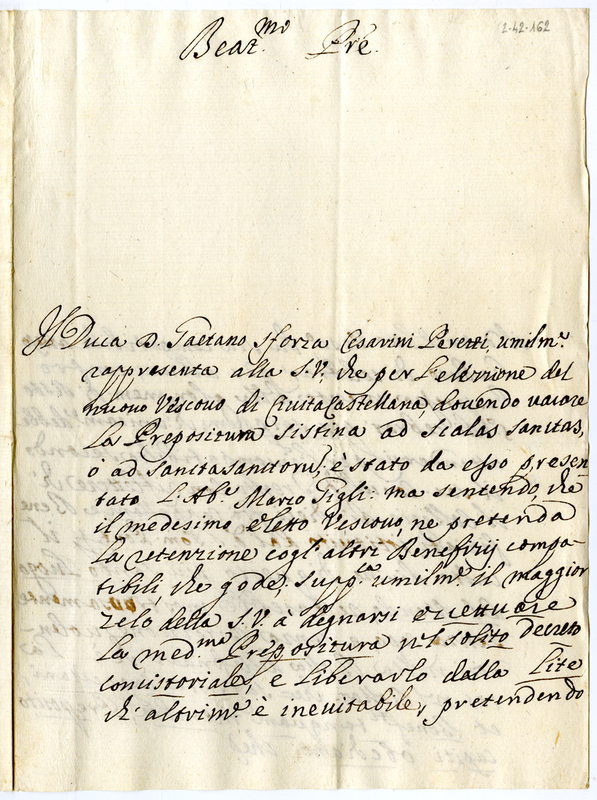 2-42-162
Beat.mo Pre.
Il Duca D. Gaetano Sforza Cesarini Peretti, umilm.e
rappresenta alla S.V. che per l'elezzione del
nuovo Vescovo di CivitaCastellana, dovendo vacare
la Prepositura Sistina ad Scalas sanctas,
ò ad Sanctasanctoru, è stato da esso presen
tato l'Ab.e Marco Gigli: ma sentendo, che
il medesimo eletto Vescovo, ne pretenda
la retenzione cogl'altri Benefizij compa-
tibili, che gode; supp.ca umilm.e il maggior
zelo della S.V. à degnarsi eccettuare
la med.ma Prepositura nel solito decreto
concistoriale, e liberarlo dalla Lite
ch'altrim.e è inevitabile, pretendendo